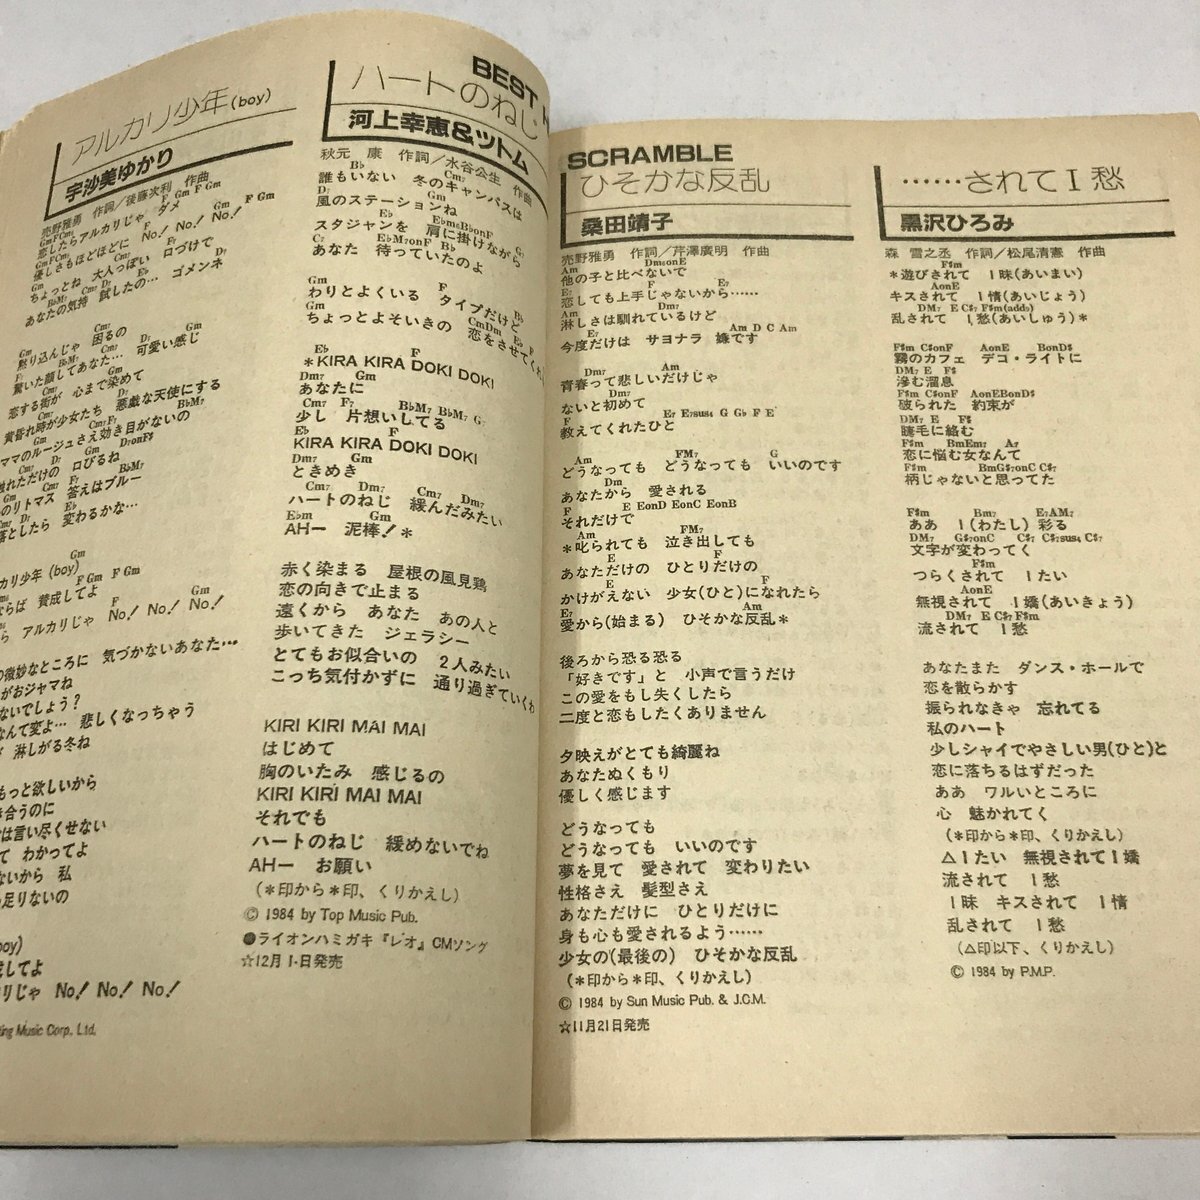 アルカリ少年(boy)
宇沙美ゆかり
売野雅勇 作詞／後藤次利 作曲
恋したらアルカリじゃ ダメ
優しさもほどほどに No! No! No!
ちょっとね 大人っぽい 口づけで
あなたの気持 試したの… ゴメンネ
黙り込んじゃ 困るの
驚いた顔してあなた… 可愛い感じ
恋する街が 心まで染めて
黄昏れ時が少女たち 悪戯な天使にする
ママのルージュさえ効き目がないの
触れただけの 口びるね
のリトマス 答えはブルー
落としたら 変わるかな…
カリ少年 (boy)
ならば 賛成してよ
ら アルカリじゃ No! No! No!
の微妙なところに 気づかないあなた…
がおジャマね
ないでしょう？
なんて変よ… 悲しくなっちゃう
淋しがる冬ね
もっと欲しいから
き合うのに
は言い尽くせない
て わかってよ
ないから 私
足りないの
boy)
成してよ
リじゃ No! No! No!
ing Music Corp. Ltd.
BEST H
ハートのねじ
河上幸恵&ツトム
秋元 康 作詞／水谷公生 作曲
Bb Cm7
誰もいない 冬のキャンパスは
D7 Gm
風のステーションね
Eb Ebm6BbonF G
スタジャンを 肩に掛けながら
C7 EbM7onF Bb
あなた 待っていたのよ
Gm F Bb
わりとよくいる タイプだけど
Gm CmDm Eb
ちょっとよそいきの 恋をさせてくた
Eb F
＊KIRA KIRA DOKI DOKI
Dm7 Gm
あなたに
Cm7 F7 BbM7 BbM7 G7
少し 片想いしてる
Eb F
KIRA KIRA DOKI DOKI
Dm7 Gm
ときめき
Cm7 Dm7 Cm7 Dm7
ハートのねじ 緩んだみたい
Ebm Gm
AHー 泥棒！＊
赤く染まる 屋根の風見鶏
恋の向きで止まる
遠くから あなた あの人と
歩いてきた ジェラシー
とてもお似合いの 2人みたい
こっち気付かずに 通り過ぎていくわ
KIRI KIRI MAI MAI
はじめて
胸のいたみ 感じるの
KIRI KIRI MAI MAI
それでも
ハートのねじ 緩めないでね
AHー お願い
（＊印から＊印、くりかえし）
© 1984 by Top Music Pub.
●ライオンハミガキ『レオ』CMソング
☆12月1日発売
SCRAMBLE
ひそかな反乱
桑田靖子
売野雅勇 作詞／芹澤廣明 作曲
Am Dm6onE
他の子と比べないで
E7 F E7
恋しても上手じゃないから……
Am Dm7
淋しさは馴れているけど
E7 Am D C Am
今度だけは サヨナラ 嫌です
Dm7 Am
青春って悲しいだけじゃ
Dm7
ないと初めて
F E7 E7sus4 G Gb F E
教えてくれたひと
Am FM7 G
どうなっても どうなっても いいのです
Dm
あなたから 愛される
F E EonD EonC EonB
それだけで
Am FM7
＊叱られても 泣き出しても
E F
あなただけの ひとりだけの
E F
かけがえない 少女(ひと)になれたら
E7 Am
愛から(始まる) ひそかな反乱＊
後ろから恐る恐る
「好きです」と 小声で言うだけ
この愛をもし失くしたら
二度と恋もしたくありません
夕映えがとても綺麗ね
あなたぬくもり
優しく感じます
どうなっても
どうなっても いいのです
夢を見て 愛されて 変わりたい
性格さえ 髪型さえ
あなただけに ひとりだけに
身も心も愛されるよう……
少女の(最後の) ひそかな反乱
（＊印から＊印、くりかえし）
© 1984 by Sun Music Pub. & J.C.M.
☆11月21日発売
……されてＩ愁
黒沢ひろみ
森 雪之丞 作詞／松尾清憲 作曲
F#m
＊遊びされて Ｉ昧(あいまい)
AonE
キスされて Ｉ情(あいじょう)
DM7 E C#7 F#m(add9)
乱されて Ｉ愁(あいしゅう)＊
F#m C#onF AonE BonD#
霧のカフェ デコ・ライトに
DM7 E F#
滲む溜息
F#m C#onF AonEBonD#
破られた 約束が
DM7 E F#
睫毛に絡む
F#m BmEm7 A7
恋に悩む女なんて
F#m BmG#7onC C#7
柄じゃないと思ってた
F#m Bm7 E7AM7
ああ Ｉ(わたし) 彩る
DM7 G#7onC C#7 C#7sus4 C#7
文字が変わってく
F#m
つらくされて Ｉたい
AonE
無視されて Ｉ嬌(あいきょう)
DM7 E C#7 F#m
流されて Ｉ愁
あなたまた ダンス・ホールで
恋を散らかす
振られなきゃ 忘れてる
私のハート
少しシャイでやさしい男(ひと)と
恋に落ちるはずだった
ああ ワルいところに
心 魅かれてく
（＊印から＊印、くりかえし）
△Ｉたい 無視されてＩ嬌
流されて Ｉ愁
Ｉ昧 キスされて Ｉ情
乱されて Ｉ愁
（△印以下、くりかえし）
© 1984 by P.M.P.